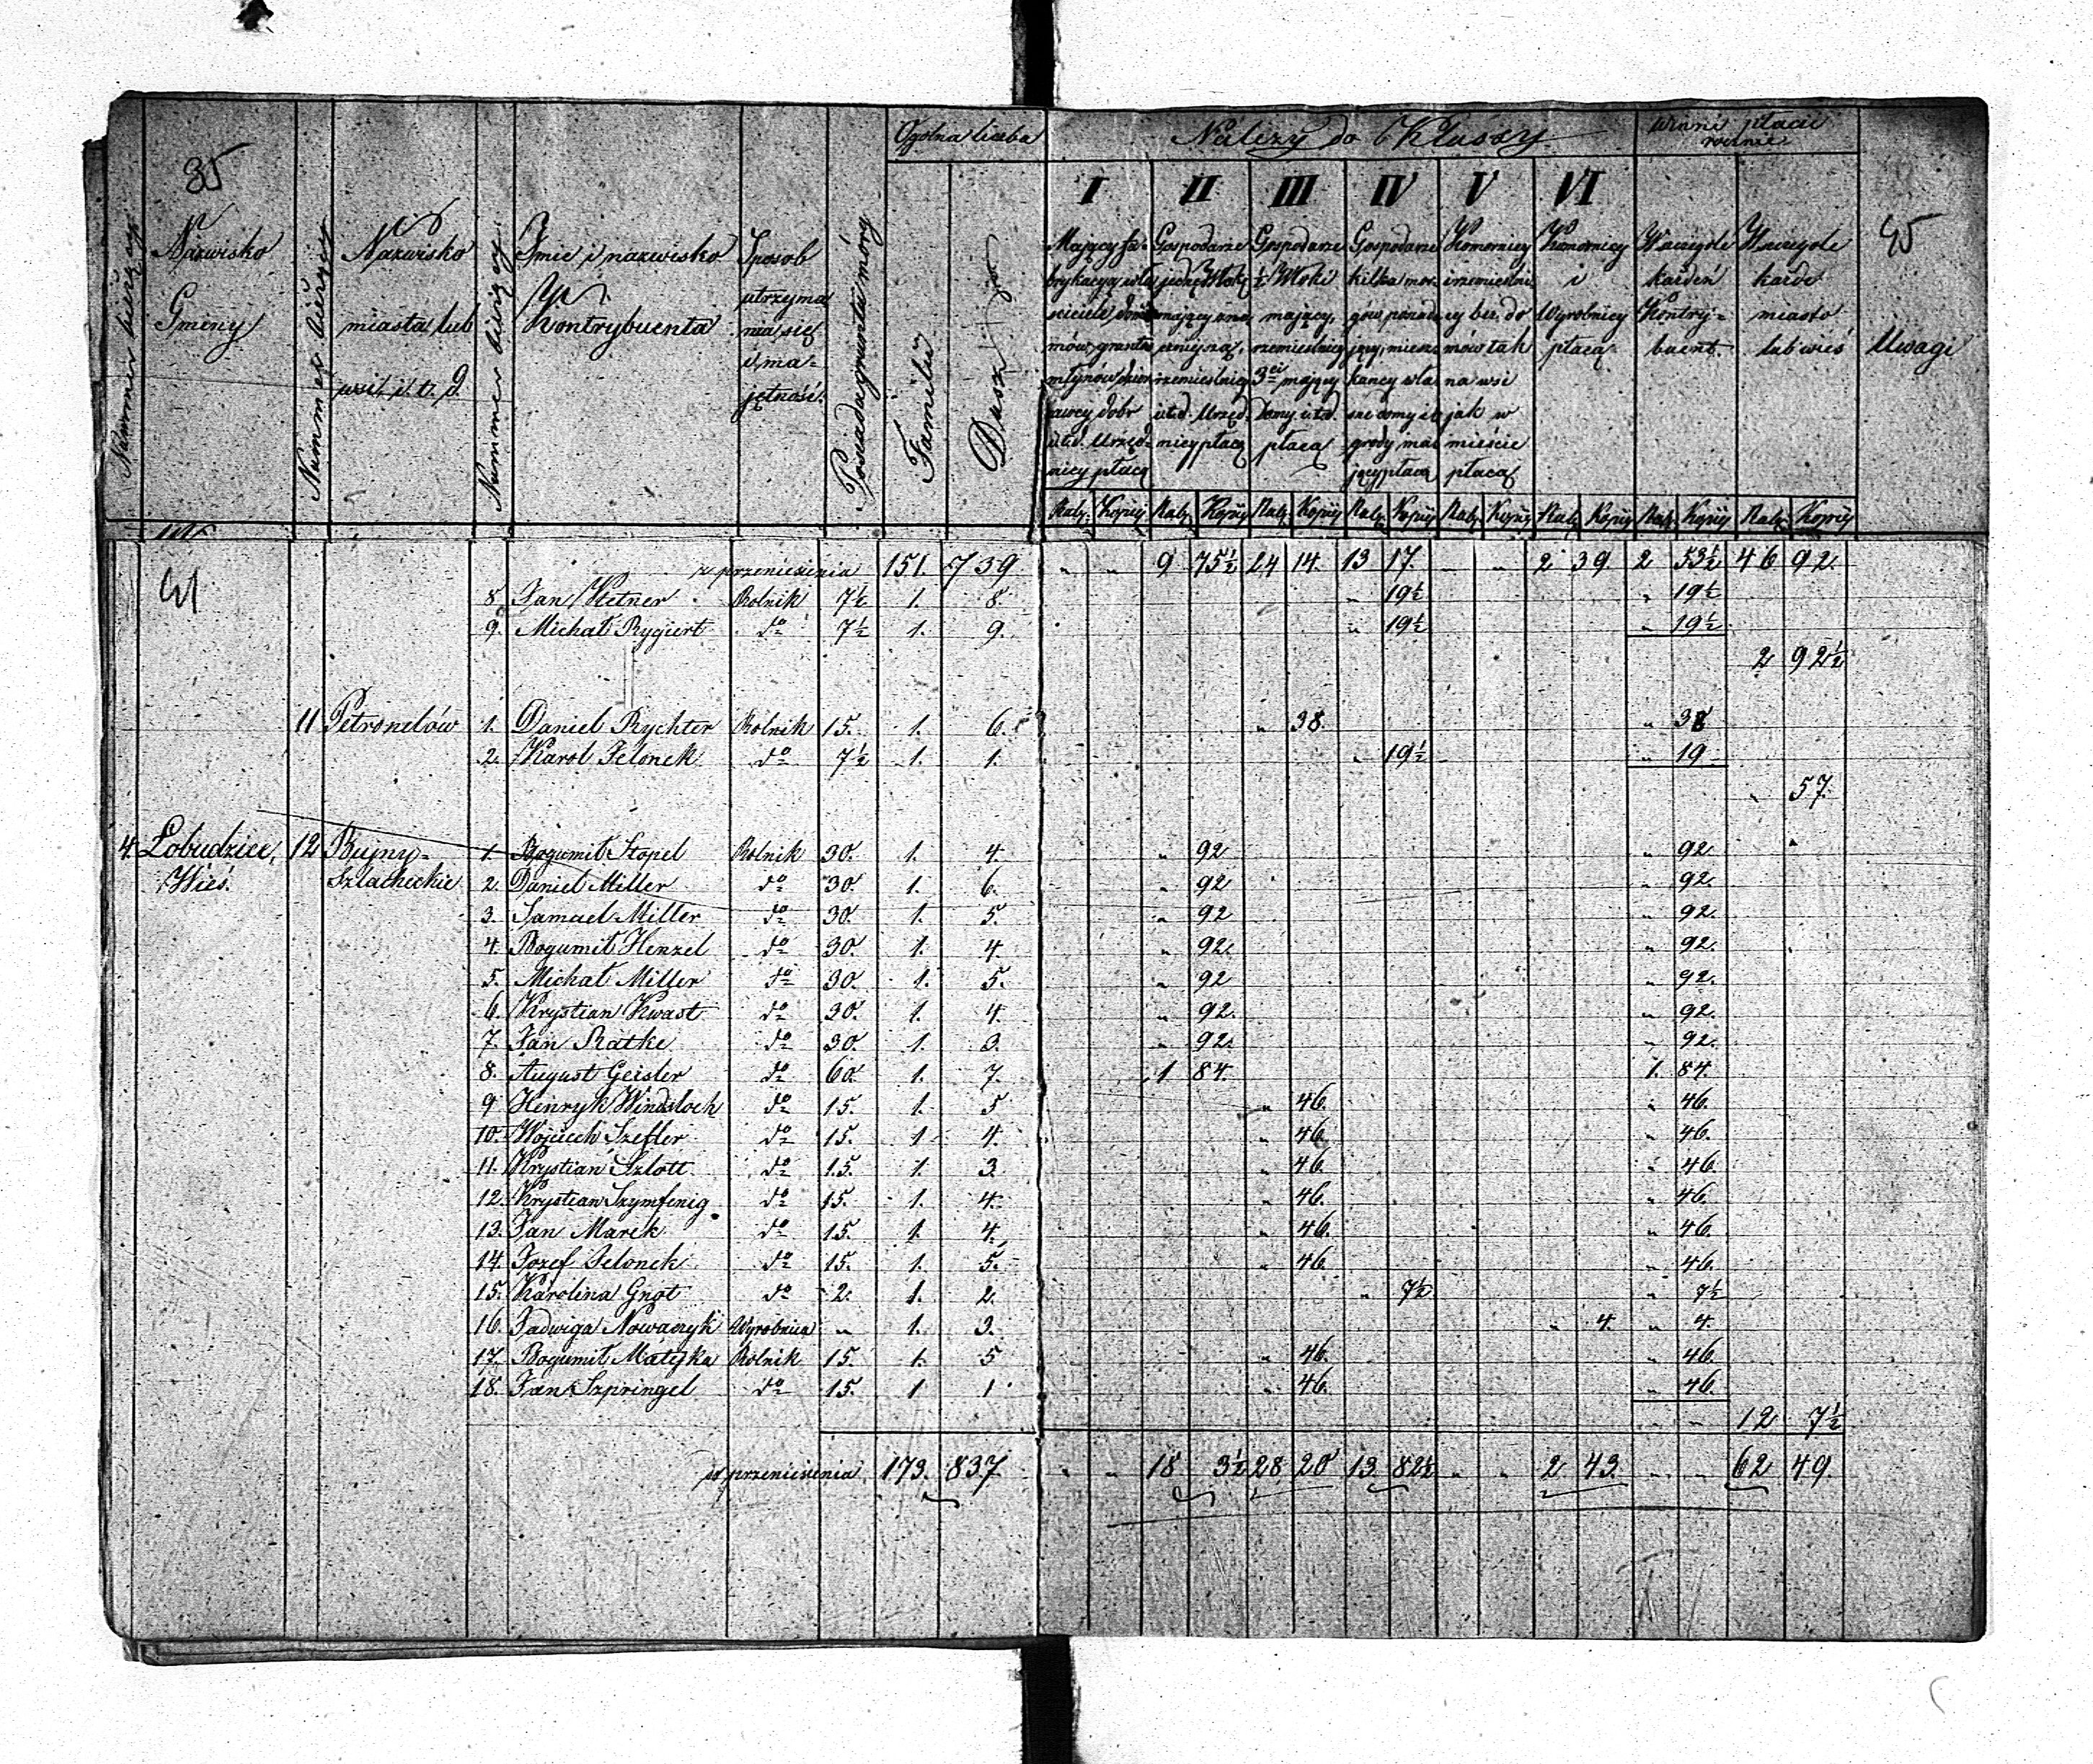 35
45
Ogólna liczba
Należy do Klassy
winni płacić
rocznie
Nummer bieżący
Nazwisko
Gminy
Nummer bieżący
Nazwisko
miasta, lub
wsi, i. t. d.
Nummer bieżący
Imie i nazwisko
Kontrybuenta
Sposob
utrzyma
nia się
majętność
Posiada gruntu morg
Familii
Dusz
I II III IV V VI
Mający fa-
brykacyą wła
ściciele
mów, gruntów
młynów,
dobr
i.t.d. Urzęd-
nicy płacą
Gospodarze
jedną Włokę
mający
rzemieślnicy
i.t.d. Urzęd-
nicy płacą
Gospodarze
½ Włoki
mający,
rzemieślnicy
3ci mający
Domy i.t.d.
płacą
Gospodarze
kilka mor-
gów posiada
jący, miesz
kańcy wła
domy i o
grody ma
jący płacą
Komornicy
i rzemieślni
cy bez do
mów tak
na wsi
jak w
mieście
płacą
Komornicy
i
Wyrobnicy
płacą
W ogóle
każden
Kontry-
buent.
W ogóle
każde
miasto
lub wieś
Uwagi
Rub. Kopiy Rub. Kopiy Rub. Kopiy Rub. Kopiy Rub. Kopiy Rub. Kopiy Rub. Kopiy Rub. Kopiy
z przeniesienia 151. 739. " " 9 75½ 24 14. 13 17. " " 2 39. 2 53½ 46 92.
41
8. Jan Netner Rolnik 7½ 1. 8. " 19½ " 19½
9. Michał Rygiert do 7½ 1. 9. " 19½ " 19½
2 92½
11 Petronelów 1. Daniel Rychter Rolnik 15. 1. 6. " 38. " 38
2. Karol Jelonek do 7½ 1. 1. " 19½ " 19
" 57.
4. Łobudzice, 12 Bujny- 1. Bogumił Stopel Rolnik 30. 1. 4. " 92 " 92
Wieś. Szlacheckie 2. Daniel Miller do 30. 1. 6. " 92 " 92.
3. Samuel Miller do 30. 1. 5. " 92 " 92.
4. Bogumił Henzel do 30. 1. 4. " 92. " 92.
5. Michał Miller do 30. 1. 5. " 92 " 92.
6. Krystian Kwast do 30. 1. 4. " 92. " 92.
7. Jan Ratke do 30. 1. 3. " 92. " 92.
8. August Geisler do 60. 1. 7. 1 84. 1. 84.
9 Henryk Windsloch do 15. 1. 5 " 46. " 46.
10. Wojciech Szefler do 15. 1 4. " 46. " 46.
11. Krystian Szlott do 15. 1. 3. " 46. " 46.
12. Krystian Szymfenig do 15. 1. 4. " 46. " 46.
13. Jan Marek do 15. 1. 4. " 46. " 46.
14. Jozef Jelonek do 15. 1. 5. " 46. " 46.
15. Karolina Gnot do 2. 1. 2. " 7½ " 7½
16. Jadwiga Nowaczyk Wyrobnica " 1. 3. " 4. " 4.
17. Bogumił Matejka Rolnik 15. 1. 5 " 46. " 46.
18. Jan Szpringel do 15. 1 1 " 46. " 46.
" " 12 7½
do przeniesienia 173. 837. " " 18 3½ 28 20 13 82½ " " 2 43. " " 62 49.